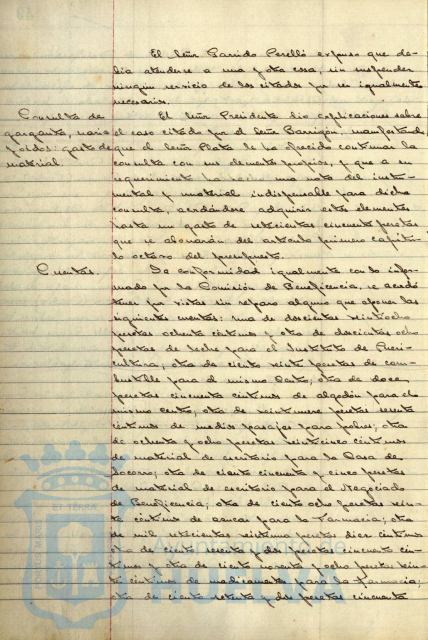 El Señor Garrido Perelló expuso que de-
bía atenderse a una y otra cosa, sin suspender
ningun servicio de los citados por ser igualmente
necesarios.
Consulta de
garganta, nariz
y oidos: gasto de
material.
El Señor Presidente dio explicaciones sobre
el caso citado por el Señor Barrigón, manifestando
que el Señor Plata le ha ofrecido continuar la
consulta con sus elementos propios, y que a su
requerimiento ha hecho una nota del instru-
mental y material indispensable para dicha
consulta, acordándose adquirir estos elementos
hasta un gasto de setecientas cincuenta pesetas
que se abonarán del articulo primero capítu-
lo octavo del presupuesto.
Cuentas.
De conformidad igualmente con lo infor-
mado por la Comisión de Beneficencia, se acordó
tener por vistas sin reparo alguno que oponer las
siguientes cuentas: una de doscientas veintiocho
pesetas ochenta céntimos y otra de doscientas ocho
pesetas de leche para el Instituto de Pueri-
cultura; otra de ciento veinte pesetas de com-
bustible para el mismo Centro; otra de doce
pesetas cincuenta céntimos de algodón para el
mismo centro; otra de veintinueve pesetas
céntimos de medios pasajes para pobres; otra
de ochenta y ocho pesetas veinticinco céntimos
de material de escritorio para la Casa de
Socorro; otra de ciento cincuenta y cinco pesetas
de material de escritorio para el Negociado
de Beneficencia; otra de ciento ocho pesetas vein-
te céntimos de azucar para la Farmacia; otra
de mil setecientas pesetas diez céntimos
otra de ciento y dos pesetas cincuenta cén-
timos y otra de ciento noventa y ocho pesetas vein-
te céntimos de medicamentos para la Farmacia;
otra de ciento setenta y dos pesetas cincuenta